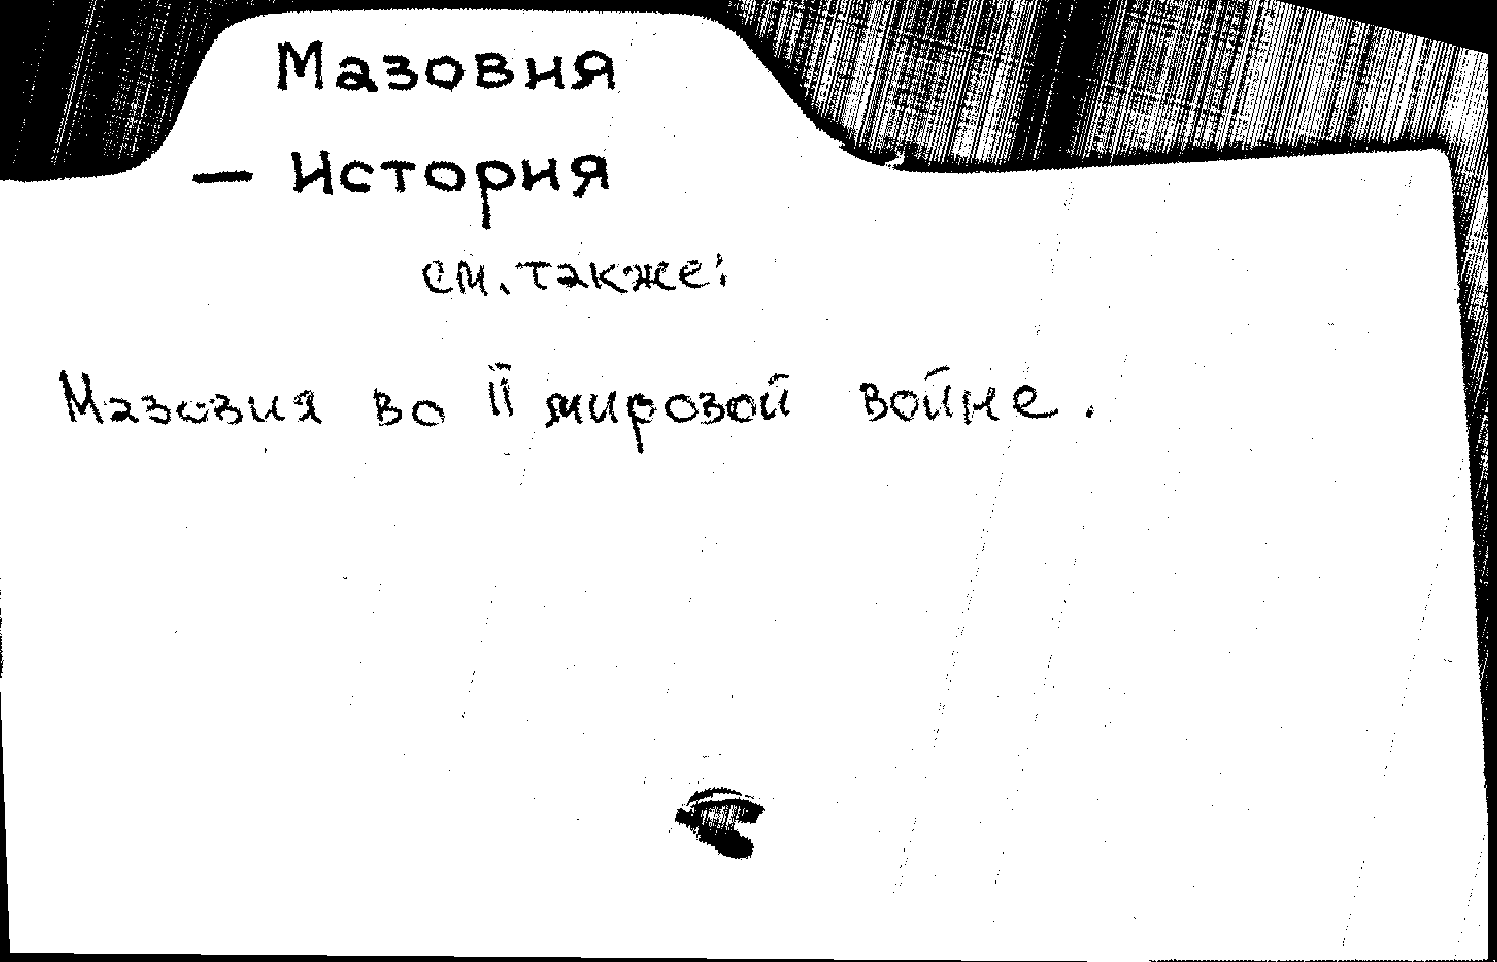 Мазовия
— История
см. также:
Мазовия во II мировой войне.